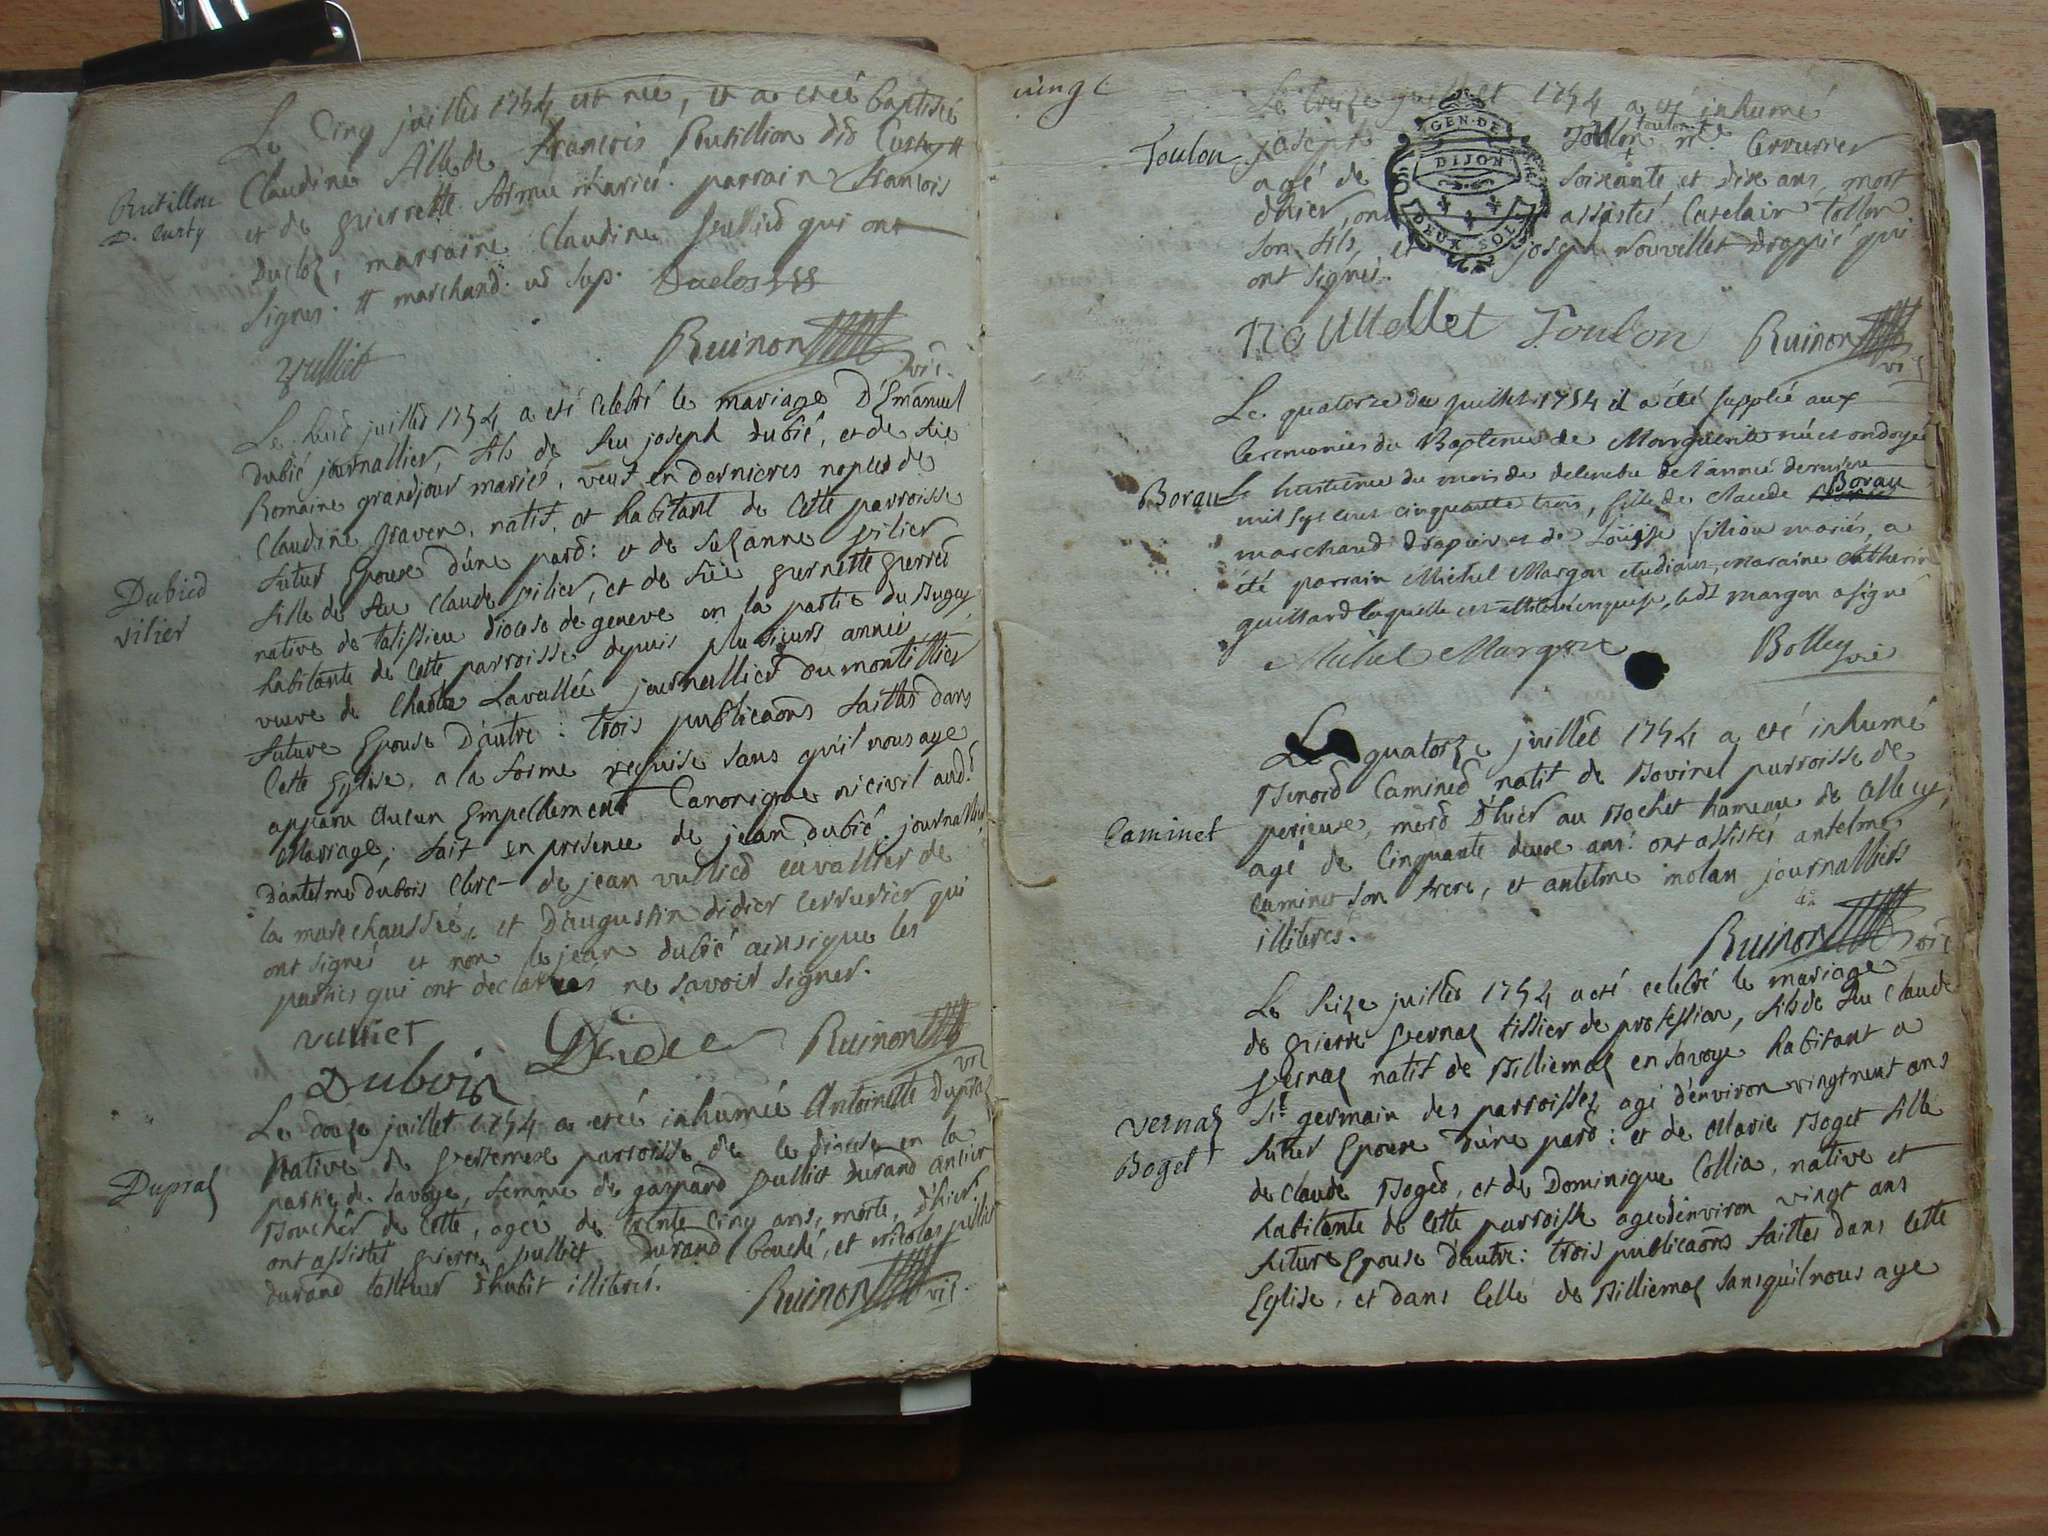 Le Cinq juillet 1754 est née, et a etéé baptisée
Claudine fille de francois Poutillion dit Custy #
et de pierrette mariés. parrain francois
Duclos, marraine Claudine qui ont
Signés. # marchand. Duclos
Putillon
D. Custy
Ruinon
vic.
Le huit juillet 1754 a eté celebré le mariage D'Emanuel
dubié journallier, fils de feu joseph dubié, et de füe
Romaine grandjour mariés, veuf en dernieres nopces de
Claudine graven, natif, et habitant de cette parroisse
futur Epoux d'une part: et de Suzanne vilier
fille de feu Claude vilier, et de füe pernette
native de talissieu diocese de geneve en la partie du Bugey
habitante de cette parroisse depuis plusieurs année
veuve de Charle Lavallée journallier du montillier
future Epouse D'autre: trois publicaõns faittes dans
Cette Eglise, a la forme requise sans qu'il nous aye
apparu Aucun Empechement Canonique ni civil aud.t
Mariage, fait en presence de jean dubié journallier
D'antelme dubois clerc de jean vulliet cavallier de
la marechaussée, et D'augustin didier cerrurier qui
ont signés et non le jean dubié ainsi que les
parties qui ont declarées ne savoir signer.
Dubied
vilier
vulliet
Didier
Ruinon
vic
Dubois
Le douze juillet 1754 a etéé inhumée Antoinette Dupraz
Native de parroisse de le diocese en la
partie de Savoye, femme de gaspard pulliet durand
Boucher de cette, agéé de trente Cinq ans, morte, D'hier
ont assistes pierre pulliet durand bouché, et nicolas pulliet
durand tailleur d'habit illiterés.
Dupraz
Ruinon
vic.
vingt
Le treize juillet 1754 a eté inhumé
joseph Tollon toulon me. Cerrurier
agé de Soixante et dix ans, mort
d'hier, ont assistés Tollon
son fils, et joseph Nouvellet Drappié qui
ont signés.
Toulon
GEN. DE
DIJON
DEUX SOLS
Nouvellet Toulon Ruinon
vic
Le quatorze du juillet 1754 il a été supplié aux
Ceremonies du Baptême de Marguerite née et ondoyé
Le huitième du mois de de l'année derniere
mil sept cent cinquante trois, fille de Claude Borau
marchand drapier et de Loüise filion mariés, a
été parrain Michel Margon etudiant, maraine Catherine
guillard laquelle est illiterée enquise, led.t margon a signé
Borau
Michel Margon Bolley
vic
Le quatorze juillet 1754 a eté inhumé
Benoid Caminet natif de Bovinel parroisse de
perieuse, mort D'hier au Rochet hameau de
agé de Cinquante deux ans: ont assistés antelme
Caminet son frere, et antelme molan journalliers
illiterés.
Caminet
Ruinon
vic
Le Seize juillet 1754 a eté celebré le mariage
de pierre vernaz tissier de profession, fils de feu Claude
vernaz natif de Billiemaz en Savoye habitant a
St. germain des parroisses, agé d'environ vingt neuf ans
futur Epoux D'une part: et de Marie Boget fille
de Claude Boget, et de Dominique Collia, native et
habitante de cette parroisse agée d'environ vingt ans
future Epouse d'autre: trois publicaõns faittes dans cette
Eglise, et dans Celle de Billiemaz sans qu'il nous aye
vernaz
Boget